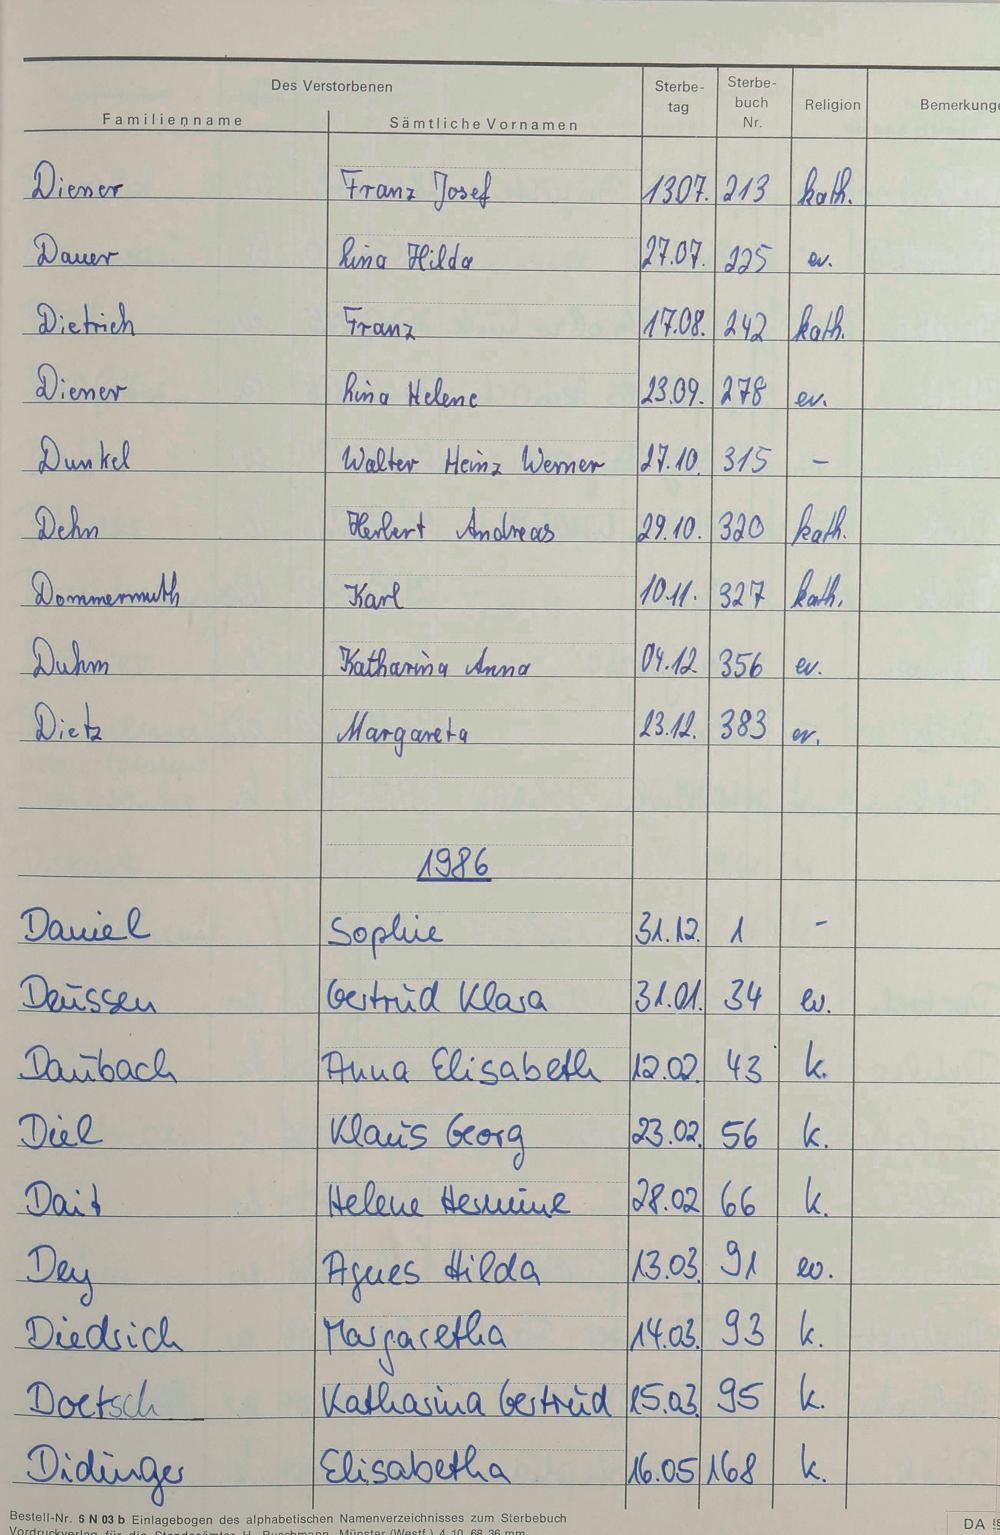 Des Verstorbenen Sterbe- Sterbe-
tag buch Religion Bemerkunge
Familienname Sämtliche Vornamen Nr.
Diener Franz Josef 1307. 213 kath.
Dauer Lina Hilda 27.07. 225 ev.
Dietrich Franz 17.08. 242 kath.
Diener Lina Helene 23.09. 278 ev.
Dunkel Walter Heinz Werner 27.10. 315 –
Dehn Herbert Andreas 29.10. 320 kath.
Dommermuth Karl 10.11. 327 kath.
Duhm Katharina Anna 04.12. 356 ev.
Dietz Margareta 23.12. 383 ev.
1986
Daniel Sophie 31.12. 1 -
Deussen Gertrud Klara 31.01. 34 ev.
Daubach Anna Elisabeth 12.02. 43 k.
Diel Klaus Georg 23.02. 56 k.
Dait Helene Hermine 28.02 66 k.
Dey Agnes Hilda 13.03. 91 ev.
Diedrich Margaretha 14.03. 93 k.
Doetsch Katharina Gertrud 15.03. 95 k.
Didinger Elisabetha 16.05 168 k.
Bestell-Nr. 5 N 03 b Einlagebogen des alphabetischen Namenverzeichnisses zum Sterbebuch
Vordruckverlag für die Standesämter H. Buschmann, Münster (Westf.) 4. 10. 68 36 mm
DA